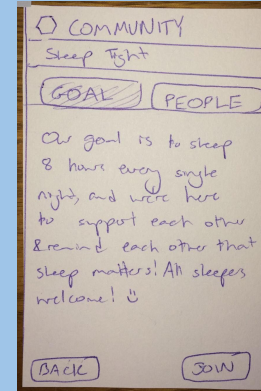 COMMUNITY
Sleep Tight
GOAL PEOPLE
Our goal is to sleep
8 hours every single
night, and we're here
to support each other
& remind each other that
sleep matters! All sleepers
welcome! :)
BACK JOIN